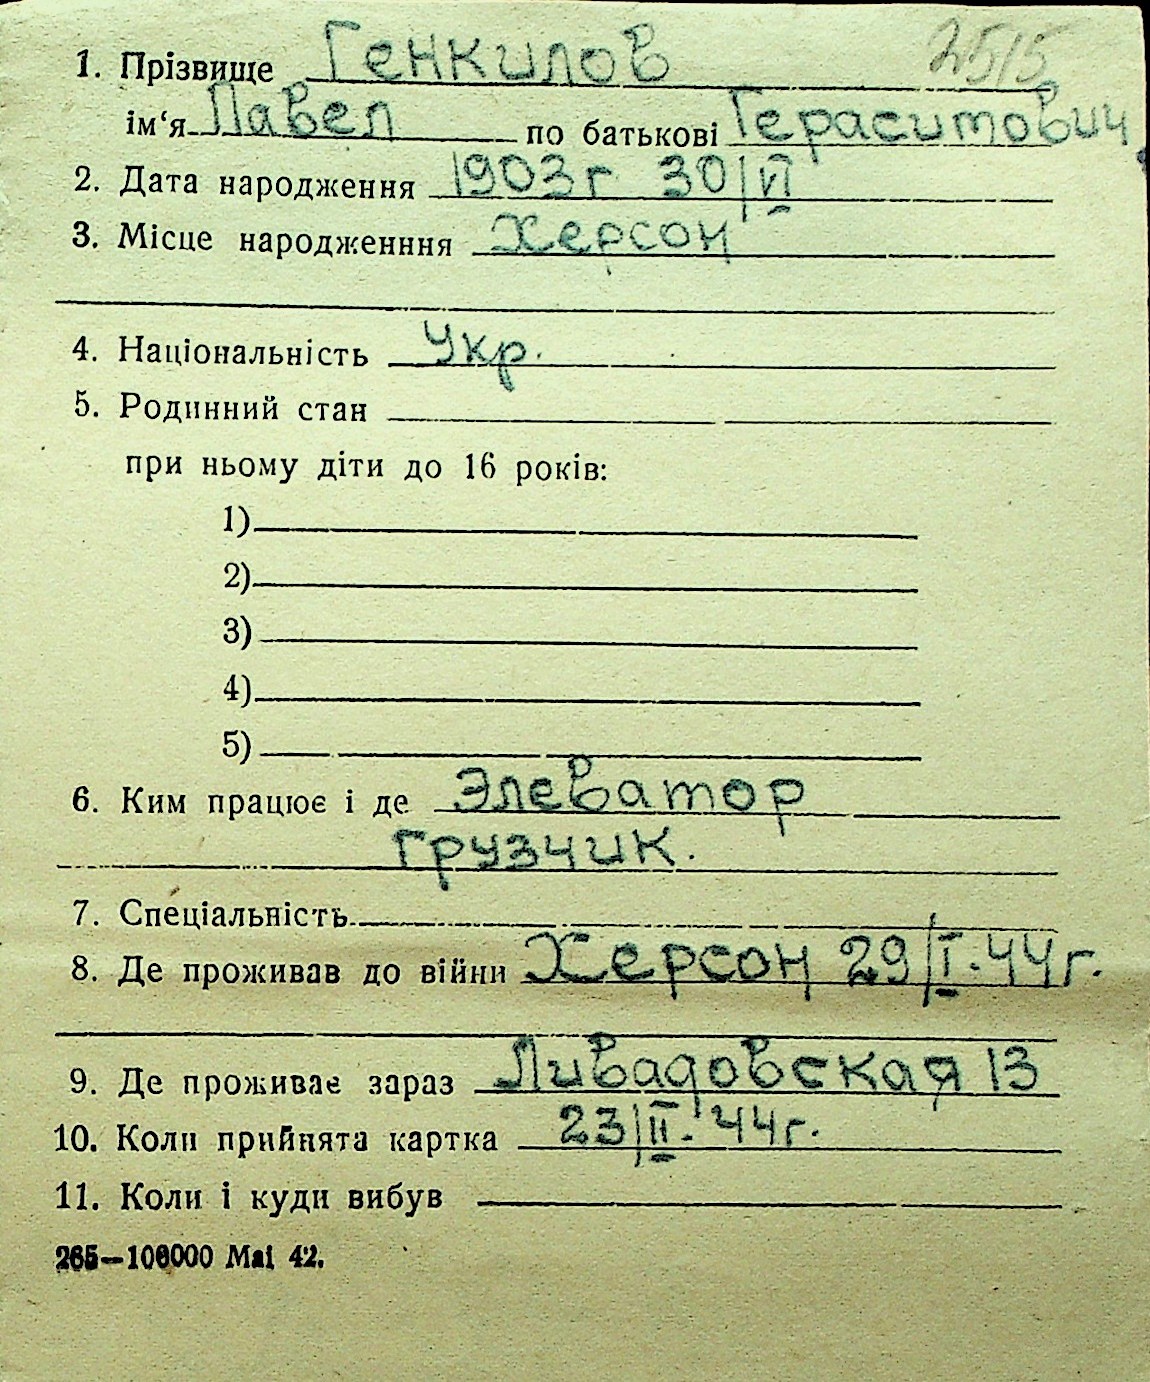 2515
1. Прізвище Генкилов
ім‘я Павел по батькові Гераситович
2. Дата народження 1903г 30/VI
3. Місце народженння Херсон
4. Національність Укр.
5. Родинний стан
при ньому діти до 16 років:
1)
2)
3)
4)
5)
6. Ким працює і де Элеватор
грузчик.
7. Спеціальність
8. Де проживав до війни Херсон 29/I.44г.
9. Де проживає зараз Ливадовская 13
10. Коли прийнята картка 23/II.44г.
11. Коли і куди вибув
265—100000 Mai 42.